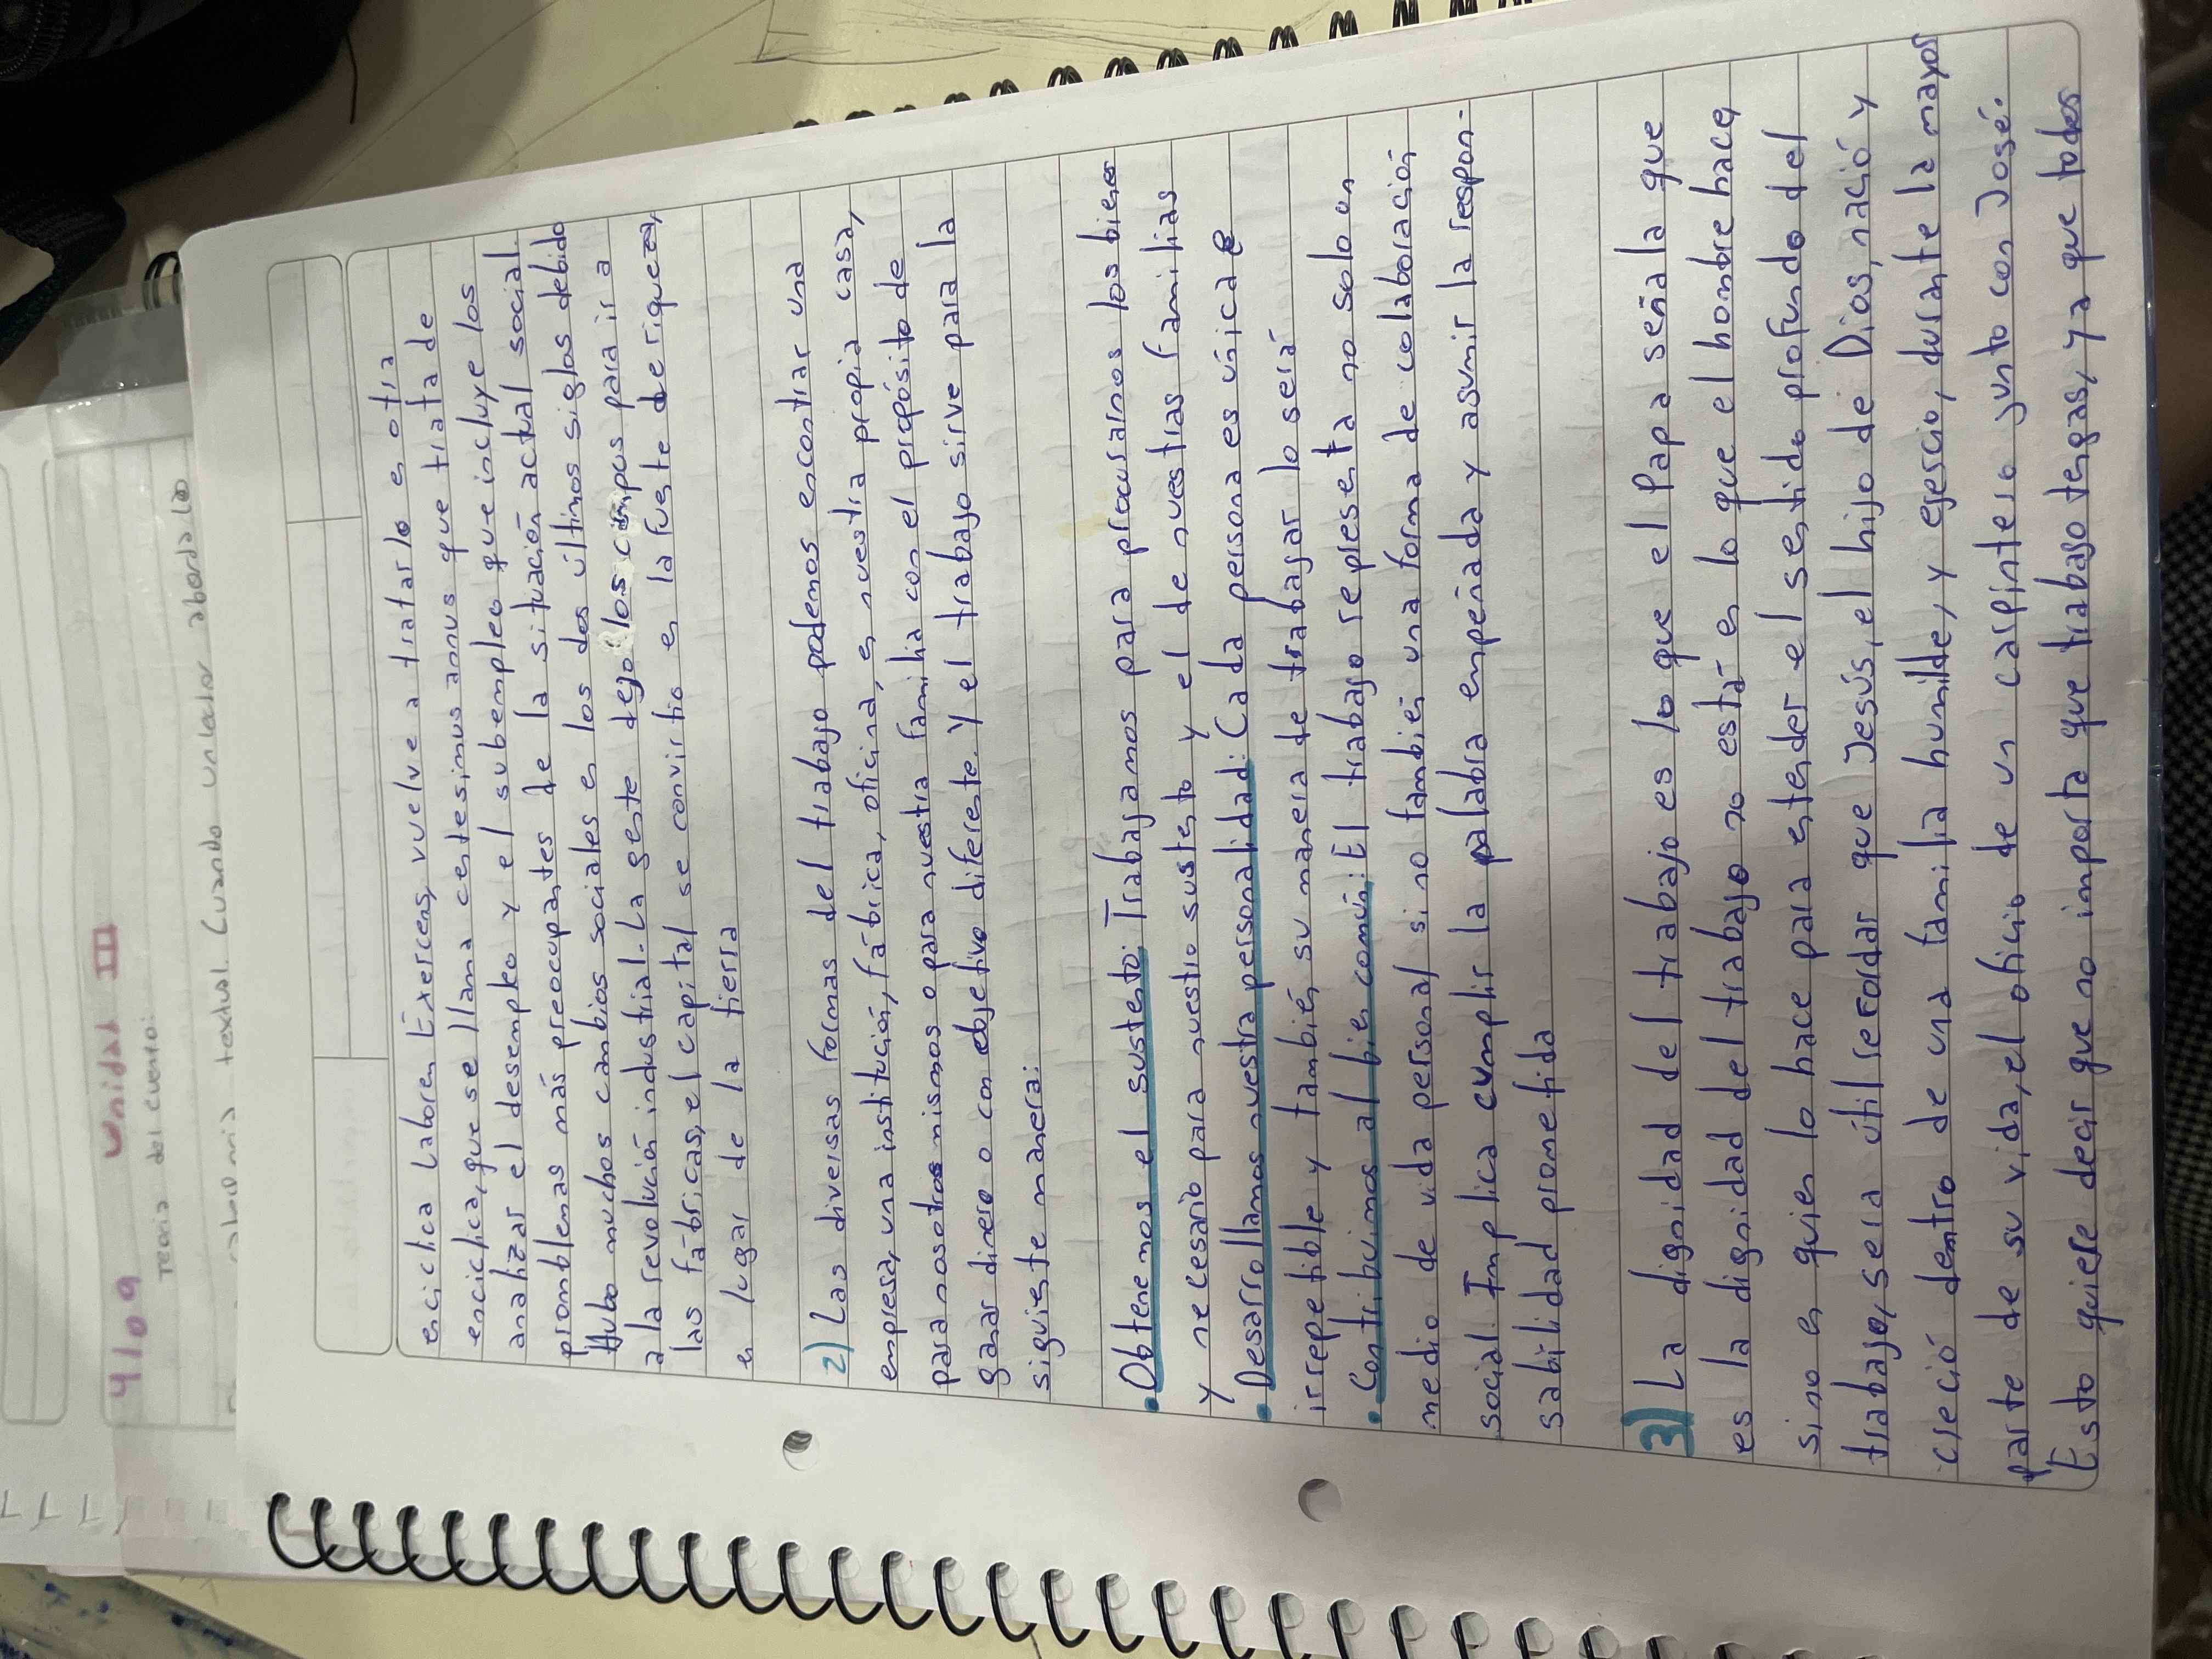 4/09 Unidad III
Tema del cuento:
textual. Cuando un lector aborda la
enciclica Laboren Exercens, vuelve a tratarlo en otra
enciclica, que se llama centesimus annus que trata de
analizar el desempleo y el subempleo que incluye los
promblemas más preocupantes de la situación actual social.
Hubo muchos cambios sociales en los dos últimos siglos debido
a la revolución industrial. La gente dejo los campos para ir a
las fábricas, el capital se convirtio en la fuente de riqueza,
en lugar de la tierra
2) Las diversas formas del trabajo podemos encontrar una
empresa, una institución, fábrica, oficina, en nuestra propia casa,
para nosotros mismos o para nuestra familia con el propósito de
ganar dinero o con objetivo diferente. Y el trabajo sirve para la
siguiente manera:
• Obtenemos el sustento: Trabajamos para procurarnos los bienes
y necesario para nuestro sustento y el de nuestras familias
• Desarrollamos nuestra personalidad: Cada persona es única e
irrepetible y también su manera de trabajar lo será
• Contribuimos al bien común: El trabajo representa no solo un
medio de vida personal si no también una forma de colaboración
social. Implica cumplir la palabra empeñada y asumir la respon-
sabilidad prometida
3) La dignidad del trabajo es lo que el Papa señala que
es la dignidad del trabajo no está en lo que el hombre hace,
sino en quien lo hace para entender el sentido profundo del
trabajo, sera útil recordar que Jesús, el hijo de Dios, nació y
creció dentro de una familia humilde, y ejercio, durante la mayor
parte de su vida, el oficio de un carpintero junto con José.
Esto quiere decir que no importa que trabajo tengas, ya que todos